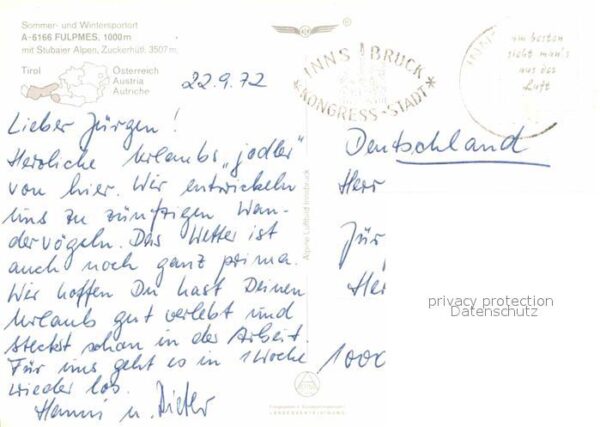 Sommer- und Wintersportort
A-6166 FULPMES, 1000m
mit Stubaier Alpen, Zuckerhütl, 3507m,
Tirol
Österreich
Austria
Autriche
22.9.72
Lieber Jürgen!
Herzliche Urlaubs„jodler"
von hier. Wir entwickeln
uns zu zünftigen Wan-
dervögeln. Das Wetter ist
auch noch ganz prima.
Wir hoffen Du hast Deinen
Urlaub gut verlebt und
steckst schon in der Arbeit.
Für uns geht es in 1 Woche
wieder los.
Hanni u. Dieter
Alpine Luftbild Innsbruck
INNSBRUCK
*KONGRESS-STADT*
am besten
sieht man's
aus der
Luft
Deutschland
Herr
Jür
Her
1000
privacy protection
Datenschutz